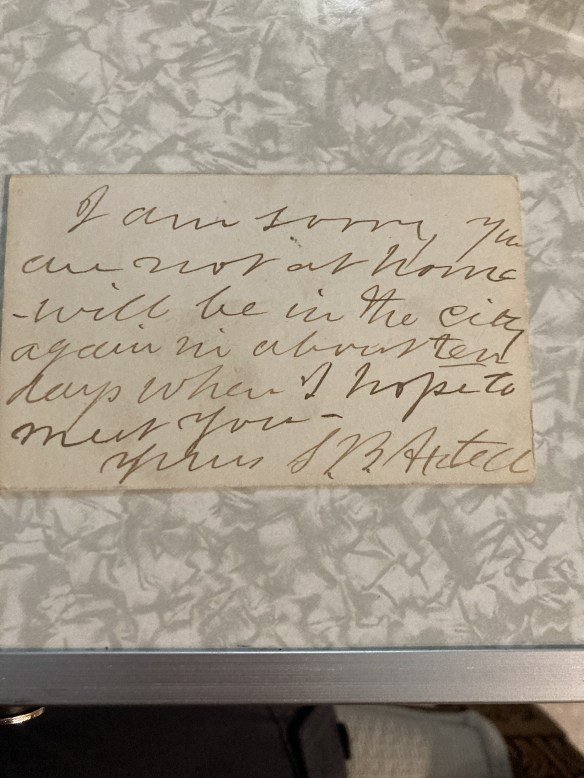 I am sorry you
are not at home
- will be in the city
again in about ten
days when I hope to
meet you -
Yours S. B. Axtell